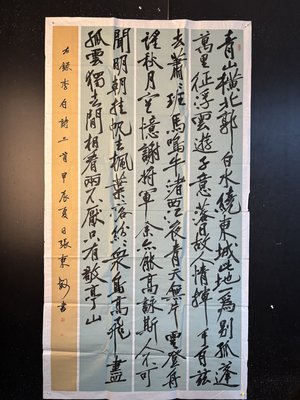 青山橫北郭白水繞東城此地為別孤蓬
萬里征浮雲遊子意落日故人情揮手自茲
去蕭〻班馬鳴牛渚西江夜青天無片雲登舟
望秋月空憶謝將軍余亦能高詠斯人不可
聞明朝挂帆去楓葉落紛〻眾鳥高飛盡
孤雲獨去閒相看兩不厭只有敬亭山
右錄李白詩三首甲辰夏日張東敏書